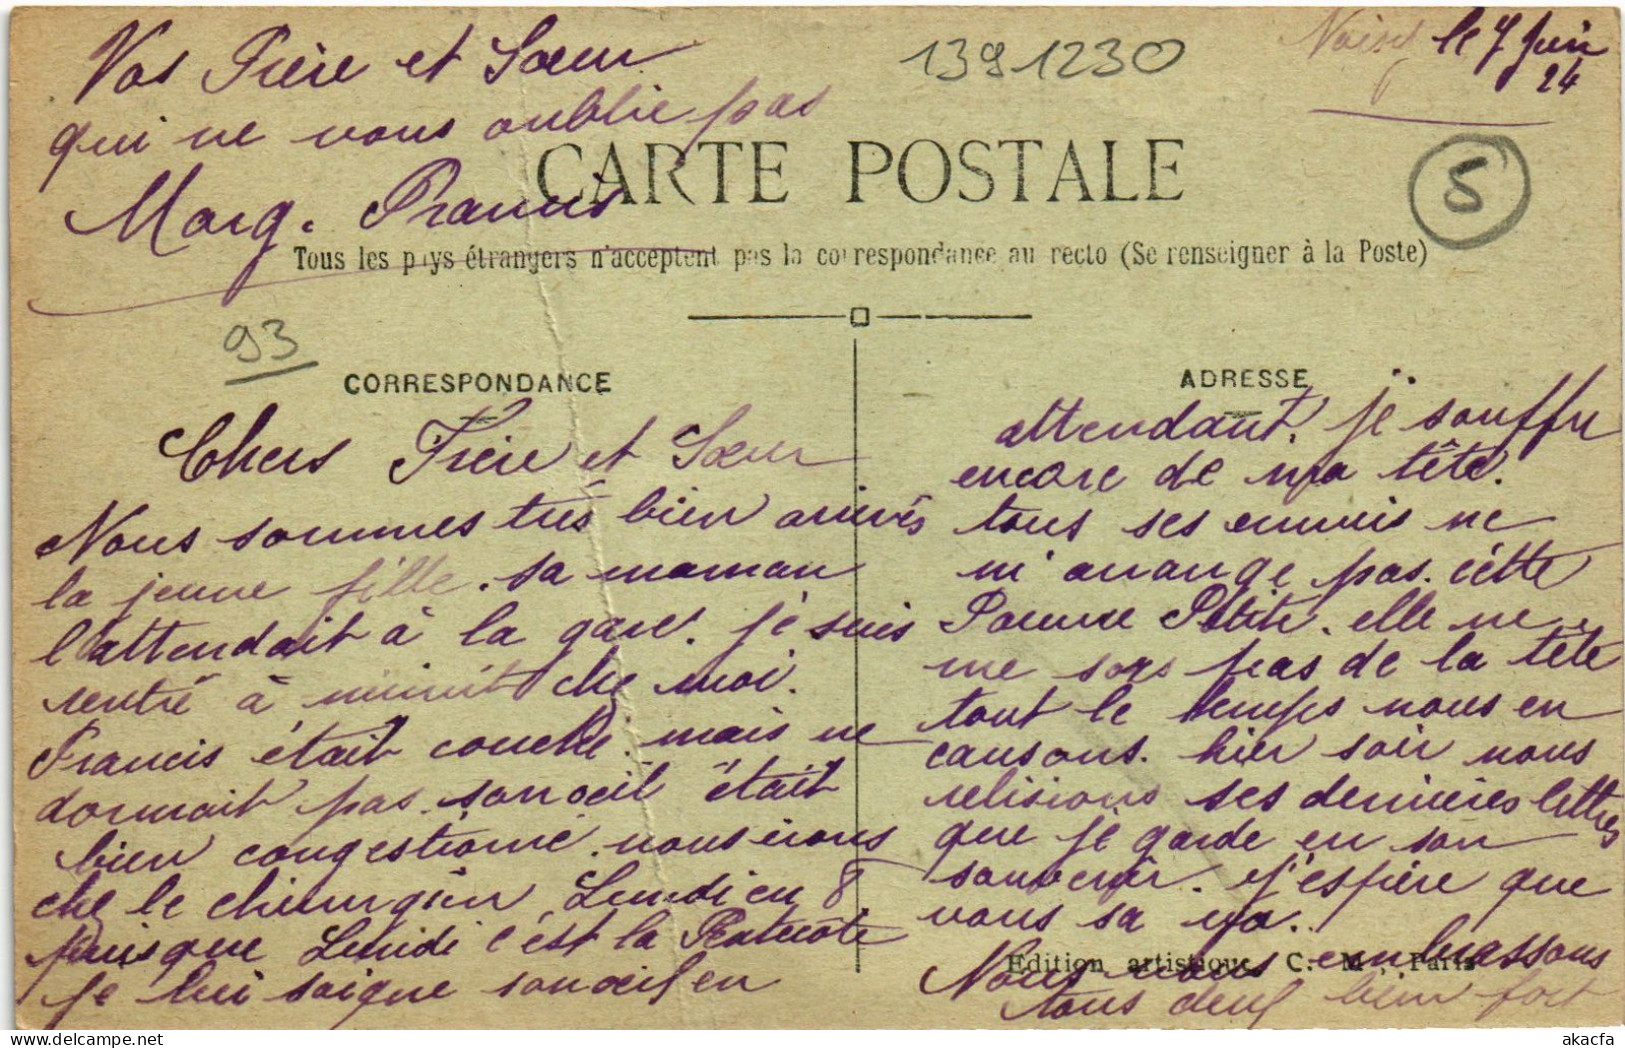 le 7 Juin
24
1391230
5
Vos Frère et Sœur
qui ne vous oublie pas
Marg. Francis
CARTE POSTALE
Tous les pays étrangers n'acceptent pas la correspondance au recto (Se renseigner à la Poste)
93
CORRESPONDANCE
Chers Frère et Sœur
Nous sommes très bien arrivés
la jeune fille. sa maman
l'attendait à la gare. je suis
rentré à minuit che moi.
Francis était couché. mais ne
dormait pas. son oeil était
bien congestioné. nous irons
che le chirurgien Lundi en 8
puisque Lundi c'est la Pentecôte
je lui soigne son oeil en
ADRESSE
attendant. je souffre
encore de ma tête.
tous ses ennuis ne
m'arrange pas. cette
Pauvre Petite. elle ne
me sors pas de la tête
tout le temps nous en
causons. hier soir nous
relisions ses dernières lettres
que je garde en son
souvenir. j'espère que
vous sa va.
Nous vous embrassons
tous deux bien fort
Edition artistique C. M., Paris
akacfa